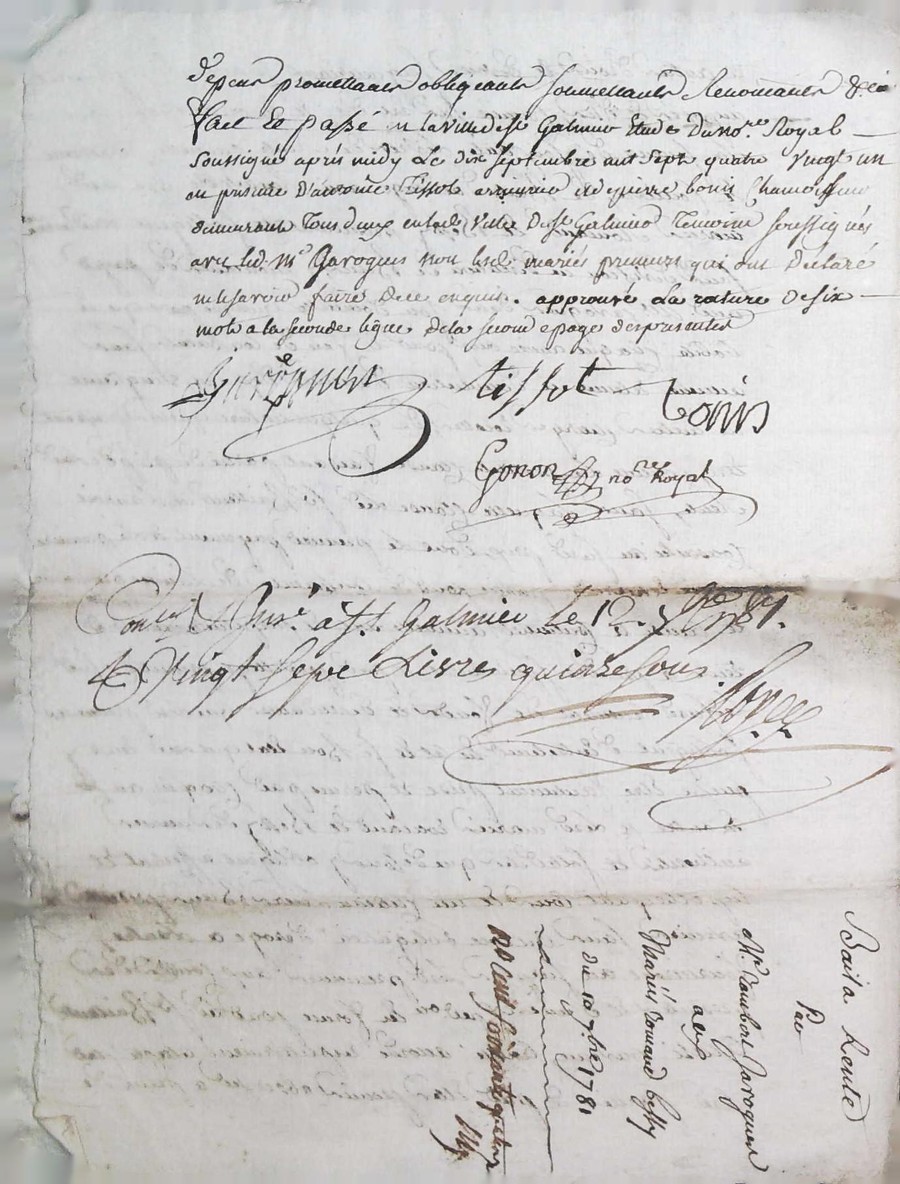 depens promettants obligeants soumettants Renoncants &ca
fait Et passé en la ville de st Galmier Etude du nore Royal
soussigné après midy Le dix septembre mil sept quatre vingt un
en présence d'antoine Tissot et de pierre bonis Chamoiseur
demeurants tous deux en lade ville de st Galmier Temoins soussignés
avec led. Mr Garoguer non lesd. mariés preneurs qui ont declaré
ne le savoir faire de ce enquis. approuvé La rature de six
mots a la seconde ligne de la seconde page des presentes
tissot
bonis
Gonon nore Royal
Con.lé & Insé à St. Galmier Le 12. 7bre 1781.
& Vingt Sept Livres quinze sous
Bail a Rente
Par
Mr
aux
Mariés bessy
du 10 7bre 1781